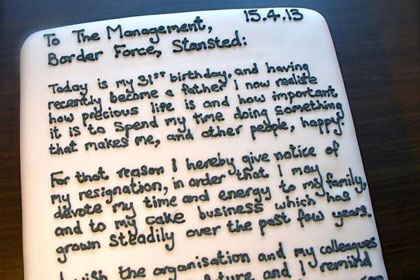 15.4.13
To The Management,
Border Force, Stansted:
Today is my 31st birthday, and having
recently become a father I now realise
how precious life is and how important
it is to spend my time doing something
that makes me, and other people, happy
For that reason I hereby give notice of
my resignation, in order that I may
devote my time and energy to my family,
and to my cake business which has
grown steadily over the past few years.
I wish the organisation and my colleagues
future and I remind